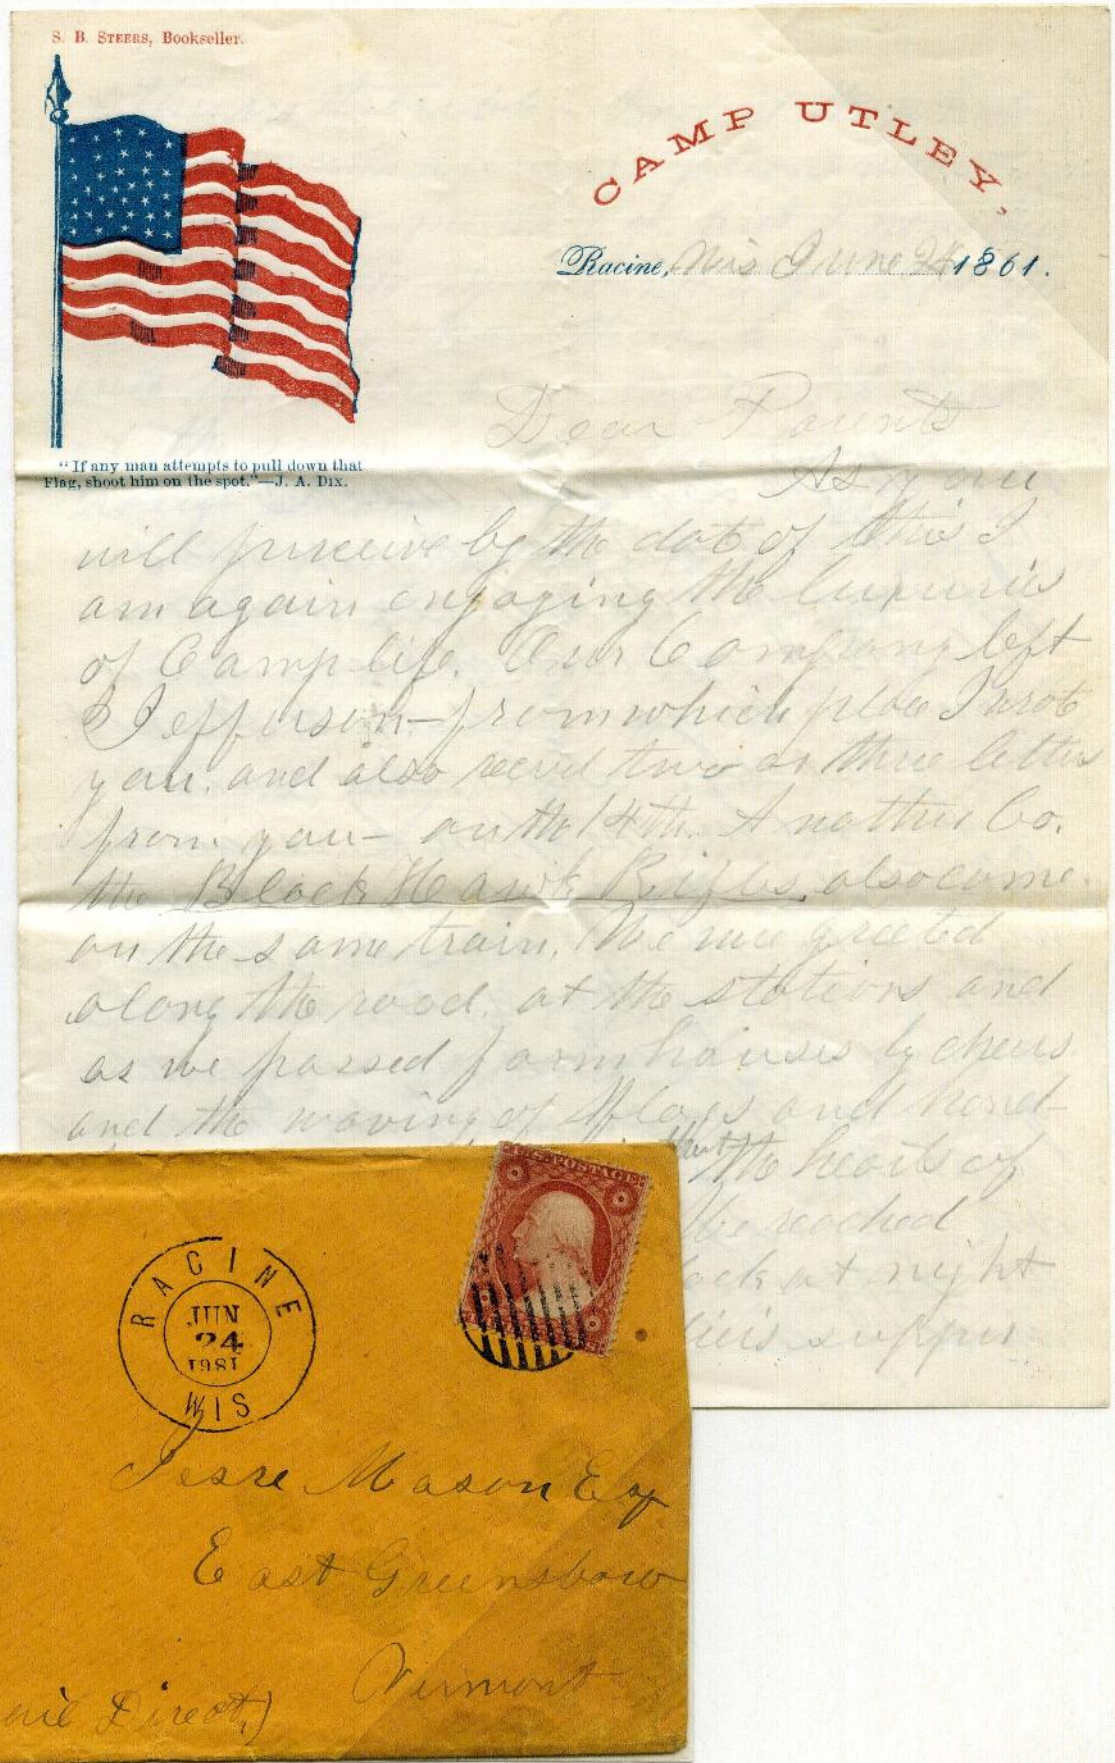 S. B. STEERS, Bookseller.
CAMP UTLEY,
Racine, Wis June 24 1861.
"If any man attempts to pull down that
Flag, shoot him on the spot."—J. A. DIX.
Dear Parents
As you
will perceive by the date of this I
am again enjoying the luxuries
of Camp life. Our Company left
Jefferson – from which place I wrote
you, and also recvd two or three letters
from you – on the 14th. Another Co.
the Black Hawk Rifles, also came
on the same train. We were greeted
along the road, at the stations and
as we passed farm houses by cheers
and the waving of flags and hand-
that the hearts of
We reached
ock at night
supper
RACINE
JUN
24
1981
WIS
U.S. POSTAGE
Jesse Mason Esq
East Greensboro
Vermont
Direct.)